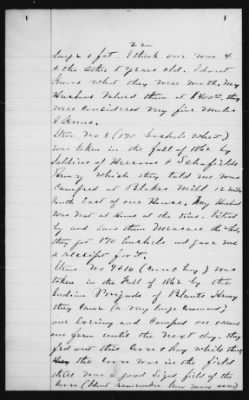 22
large & fat. I think one was 4
& the other 5 years old. I don't
know what they were worth. My
Husband Valued them at $400⁰⁰. they
were considered very fine Mules
I know.
Item No 8 (170 bushels wheat)
was taken in the fall of 1862 by
Soldiers of Herron & Schofields
Army which they told me was
Camped at Blakes Mill 12 miles
South East of our House. My Husband
was not at Home at the time.
by and saw them Measure the wheat,
they got 170 bushels and gave me
a receipt for it.
Items No 9 & 10 (Corn & hay) was
taken in the Fall of 1862 by the
Indian Brigade of Blunts Army
they came (a very large command)
one Evening and Camped on
our farm until the next day. they
fed out this Corn & hay while there
the Corn was in the field
there was a good sized field of the
Corn (I dont remember how many acres)